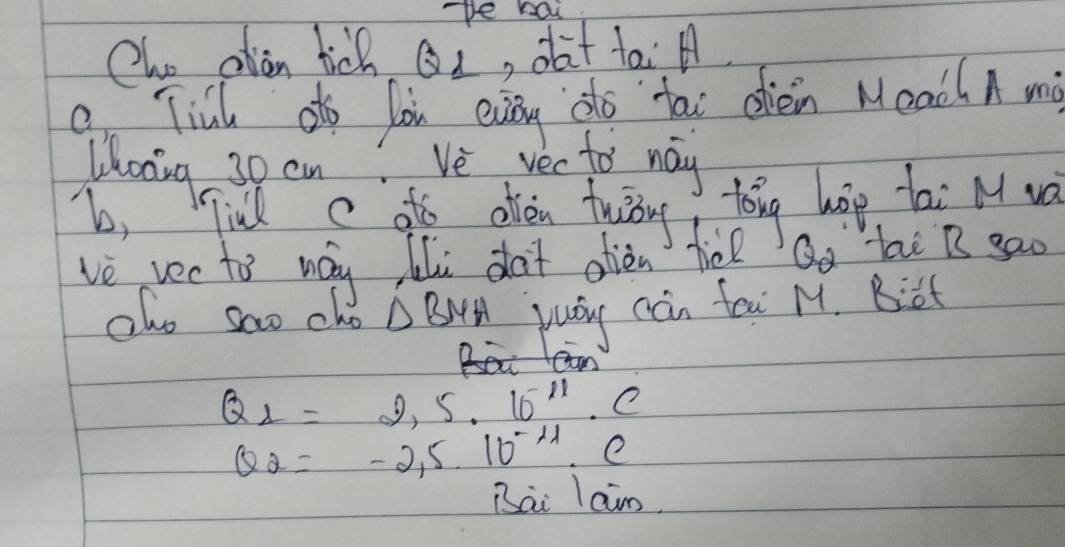 Đề bài
Cho điện tích Q1, đặt tại A.
a, Tính độ lớn cường độ tại điểm M cách A mộ
khoảng 30 cm. Vẽ véc tơ này
b, Tính C độ điện trường tổng hợp tại M và
vẽ véc tơ này khi đặt điện tích Q2 tại B sao
cho sao cho Δ BMA vuông cân tại M. Biết
Bài làm
Q1 = 2,5. 10⁻¹¹. C
Q2 = -2,5. 10⁻¹¹. C
Bài làm.